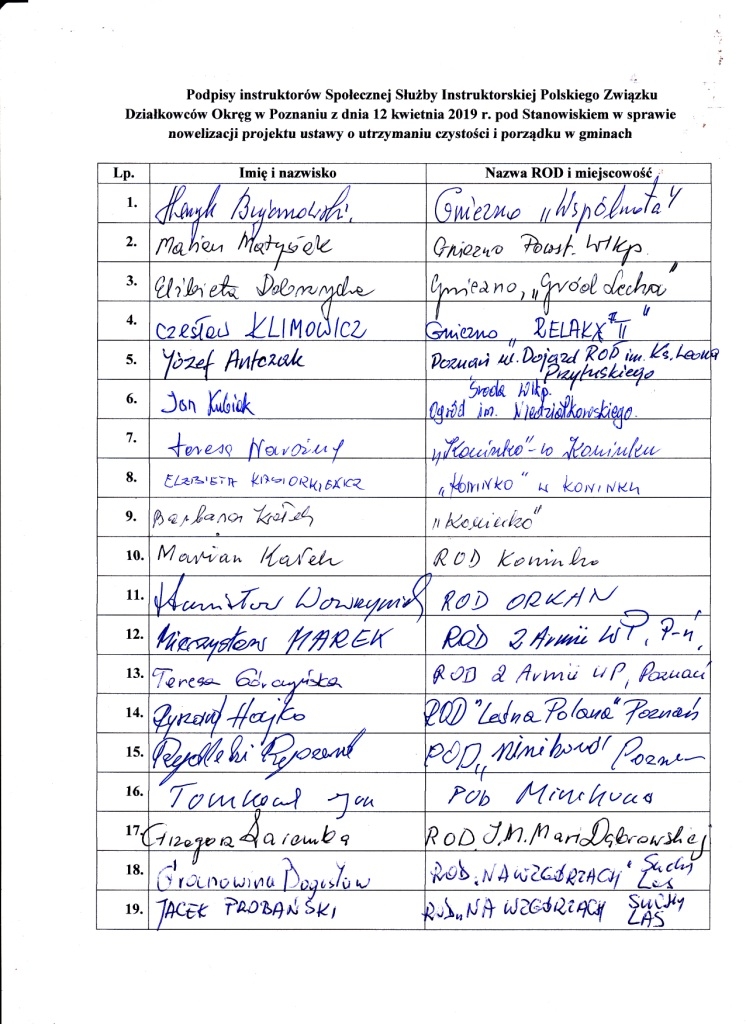 Podpisy instruktorów Społecznej Służby Instruktorskiej Polskiego Związku
Działkowców Okręg w Poznaniu z dnia 12 kwietnia 2019 r. pod Stanowiskiem w sprawie
nowelizacji projektu ustawy o utrzymaniu czystości i porządku w gminach
Lp. Imię i nazwisko Nazwa ROD i miejscowość
1. Henryk Gniezno „Wspólnota"
2. Marian Matysiak Gniezno Powst. Wlkp.
3. Elżbieta Gniezno, „Gród Lecha"
4. Czesław KLIMOWICZ Gniezno „RELAKX II"
5. Józef Antczak Poznań ul. Dojazd ROD im. Ks. Leona
Przyłuskiego
6. Jan Kubiak Środa Wlkp.
Ogród im. Niedziałkowskiego.
7. Teresa Narożny „Koninko" - w Koninku
8. ELŻBIETA „KONINKO" w KONINKU
9. Barbara „Koninko"
10. Marian ROD Koninko
11. Stanisław ROD ORKAN
12. Mieczysław MAREK ROD 2 Armii WP, P-ń,
13. Teresa Górczyńska ROD 2 Armii WP, Poznań
14. Hajko ROD "Leśna Polana" Poznań
15. Ryszard ROD „Minikowo" Poznań
16. Jan ROD Minikowo
17. Grzegorz Zaremba ROD J.M. Mari Dąbrowskiej
18. Bogusław ROD „NA WZGÓRZACH" Suchy
Las
19. JACEK PROBAŃSKI ROD „NA WZGÓRZACH SUCHY
LAS